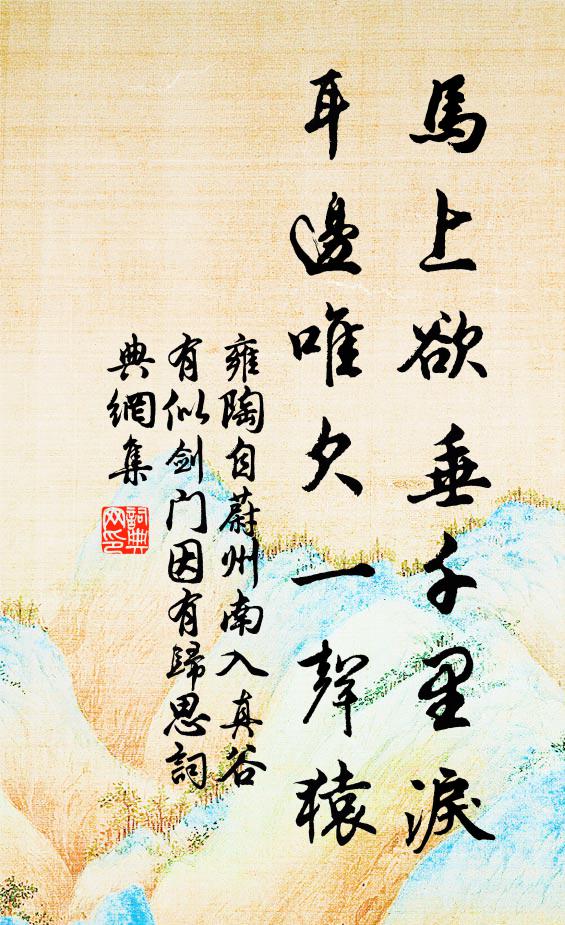 馬上欲垂千里淚
耳邊唯欠一聲猿
雍陶自蔚州南入真谷
有似剑门因有歸思詞
典網集
詞典
网印